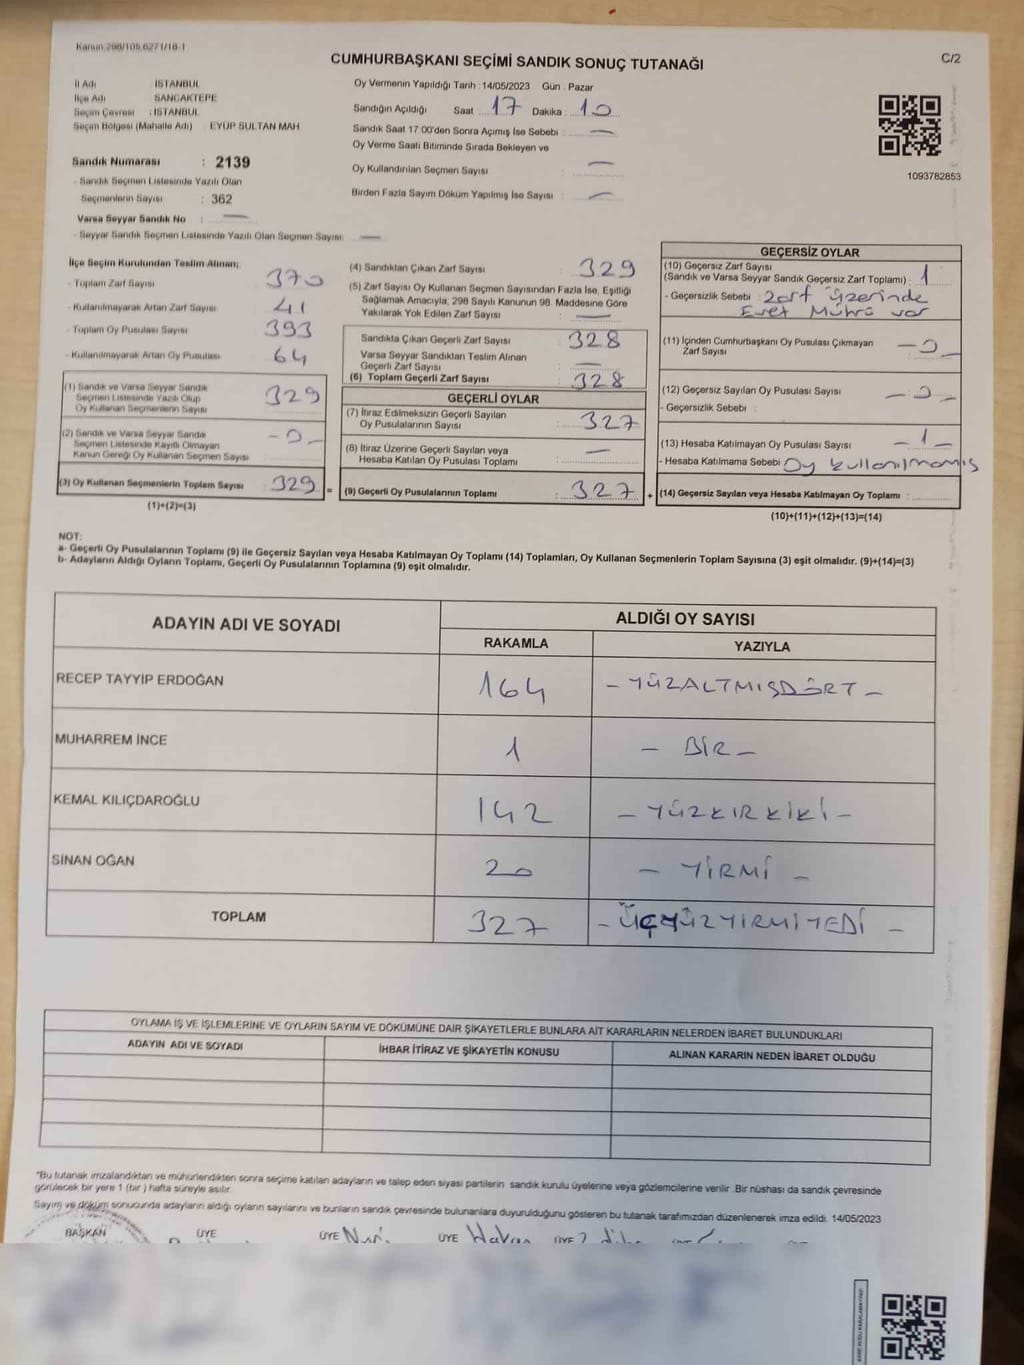 Kanun 298/105,6271/18-1
CUMHURBAŞKANI SEÇİMİ SANDIK SONUÇ TUTANAĞI
C/2
İl Adı : İSTANBUL
İlçe Adı : SANCAKTEPE
Seçim Çevresi : İSTANBUL
Seçim Bölgesi (Mahalle Adı) : EYÜP SULTAN MAH.
Sandık Numarası : 2139
- Sandık Seçmen Listesinde Yazılı Olan
Seçmenlerin Sayısı : 362
Varsa Seyyar Sandık No : —
- Seyyar Sandık Seçmen Listesinde Yazılı Olan Seçmen Sayısı: —
Oy Vermenin Yapıldığı Tarih : 14/05/2023 Gün : Pazar
Sandığın Açıldığı Saat : 17 Dakika : 10
Sandık Saat 17:00'den Sonra Açımış İse Sebebi : —
Oy Verme Saati Bitiminde Sırada Bekleyen ve
Oy Kullandırılan Seçmen Sayısı : —
Birden Fazla Sayım Döküm Yapılmış İse Sayısı : —
1093782853
İlçe Seçim Kurulundan Teslim Alınan;
- Toplam Zarf Sayısı : 370
- Kullanılmayarak Artan Zarf Sayısı : 41
- Toplam Oy Pusulası Sayısı : 393
- Kullanılmayarak Artan Oy Pusulası : 64
(1) Sandık ve Varsa Seyyar Sandık
Seçmen Listesinde Yazılı Olup
Oy Kullanan Seçmenlerin Sayısı : 329
(2) Sandık ve Varsa Seyyar Sandık
Seçmen Listesinde Kayıtlı Olmayan
Kanun Gereği Oy Kullanan Seçmen Sayısı : -0-
(3) Oy Kullanan Seçmenlerin Toplam Sayısı : 329 =
(1)+(2)=(3)
(4) Sandıktan Çıkan Zarf Sayısı : 329
(5) Zarf Sayısı Oy Kullanan Seçmen Sayısından Fazla İse, Eşitliği
Sağlamak Amacıyla, 298 Sayılı Kanunun 98. Maddesine Göre
Yakılarak Yok Edilen Zarf Sayısı : —
Sandıkta Çıkan Geçerli Zarf Sayısı : 328
Varsa Seyyar Sandıktan Teslim Alınan
Geçerli Zarf Sayısı : —
(6) Toplam Geçerli Zarf Sayısı : 328
GEÇERLİ OYLAR
(7) İtiraz Edilmeksizin Geçerli Sayılan
Oy Pusulalarının Sayısı : 327
(8) İtiraz Üzerine Geçerli Sayılan veya
Hesaba Katılan Oy Pusulası Toplamı : —
(9) Geçerli Oy Pusulalarının Toplamı : 327 +
GEÇERSİZ OYLAR
(10) Geçersiz Zarf Sayısı
(Sandık ve Varsa Seyyar Sandık Geçersiz Zarf Toplamı) : 1
- Geçersizlik Sebebi : Zarf üzerinde
Evet Mührü var
(11) İçinden Cumhurbaşkanı Oy Pusulası Çıkmayan
Zarf Sayısı : -0-
(12) Geçersiz Sayılan Oy Pusulası Sayısı : -0-
- Geçersizlik Sebebi :
(13) Hesaba Katılmayan Oy Pusulası Sayısı : -1-
- Hesaba Katılmama Sebebi : Oy kullanılmamış
(14) Geçersiz Sayılan veya Hesaba Katılmayan Oy Toplamı :
(10)+(11)+(12)+(13)=(14)
NOT:
a- Geçerli Oy Pusulalarının Toplamı (9) ile Geçersiz Sayılan veya Hesaba Katılmayan Oy Toplamı (14) Toplamları, Oy Kullanan Seçmenlerin Toplam Sayısına (3) eşit olmalıdır. (9)+(14)=(3)
b- Adayların Aldığı Oyların Toplamı, Geçerli Oy Pusulalarının Toplamına (9) eşit olmalıdır.
ADAYIN ADI VE SOYADI
ALDIĞI OY SAYISI
RAKAMLA YAZIYLA
RECEP TAYYİP ERDOĞAN 164 - YÜZALTMIŞDÖRT -
MUHARREM İNCE 1 - BİR -
KEMAL KILIÇDAROĞLU 142 - YÜZKIRKİKİ -
SİNAN OĞAN 20 - YİRMİ -
TOPLAM 327 - ÜÇYÜZYİRMİYEDİ -
OYLAMA İŞ VE İŞLEMLERİNE VE OYLARIN SAYIM VE DÖKÜMÜNE DAİR ŞİKAYETLERLE BUNLARA AİT KARARLARIN NELERDEN İBARET BULUNDUKLARI
ADAYIN ADI VE SOYADI İHBAR İTİRAZ VE ŞİKAYETİN KONUSU ALINAN KARARIN NEDEN İBARET OLDUĞU
*Bu tutanak imzalandıktan ve mühürlendikten sonra seçime katılan adayların ve talep eden siyasi partilerin sandık kurulu üyelerine veya gözlemcilerine verilir. Bir nüshası da sandık çevresinde
görülecek bir yere 1 (bir ) hafta süreyle asılır.
Sayım ve döküm sonucunda adayların aldığı oyların sayılarını ve bunların sandık çevresinde bulunanlara duyurulduğunu gösteren bu tutanak tarafımızdan düzenlenerek imza edildi. 14/05/2023
BAŞKAN ÜYE ÜYE ÜYE ÜYE